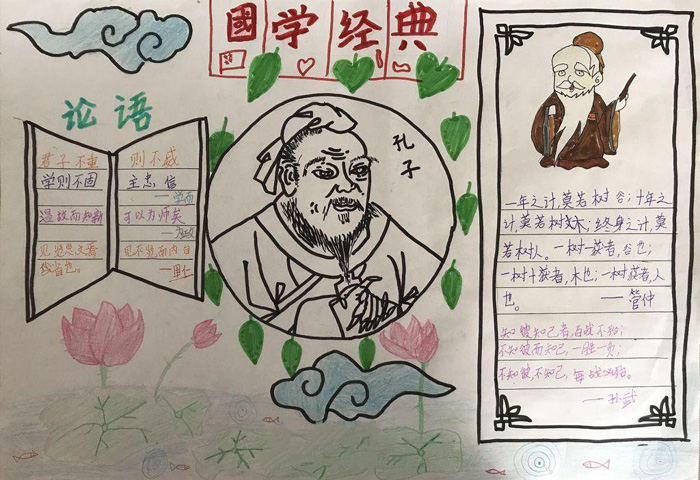 國学经典
论语
君子不重
学则不固
温故而知新
见贤思
我省也。
则不威
主忠信
——学而
可以为师矣
——为政
见不贤而内自
——里仁
孔子
一年之计,莫若树谷;十年之
计,莫若树木;终身之计,莫
若树人。一树一获者,谷也;
一树十获者,木也;一树获者,人
也。 ——管仲
知彼知己者,百战不殆;
不知彼而知己,一胜一负;
不知彼,不知己,每战必殆。
——孙武